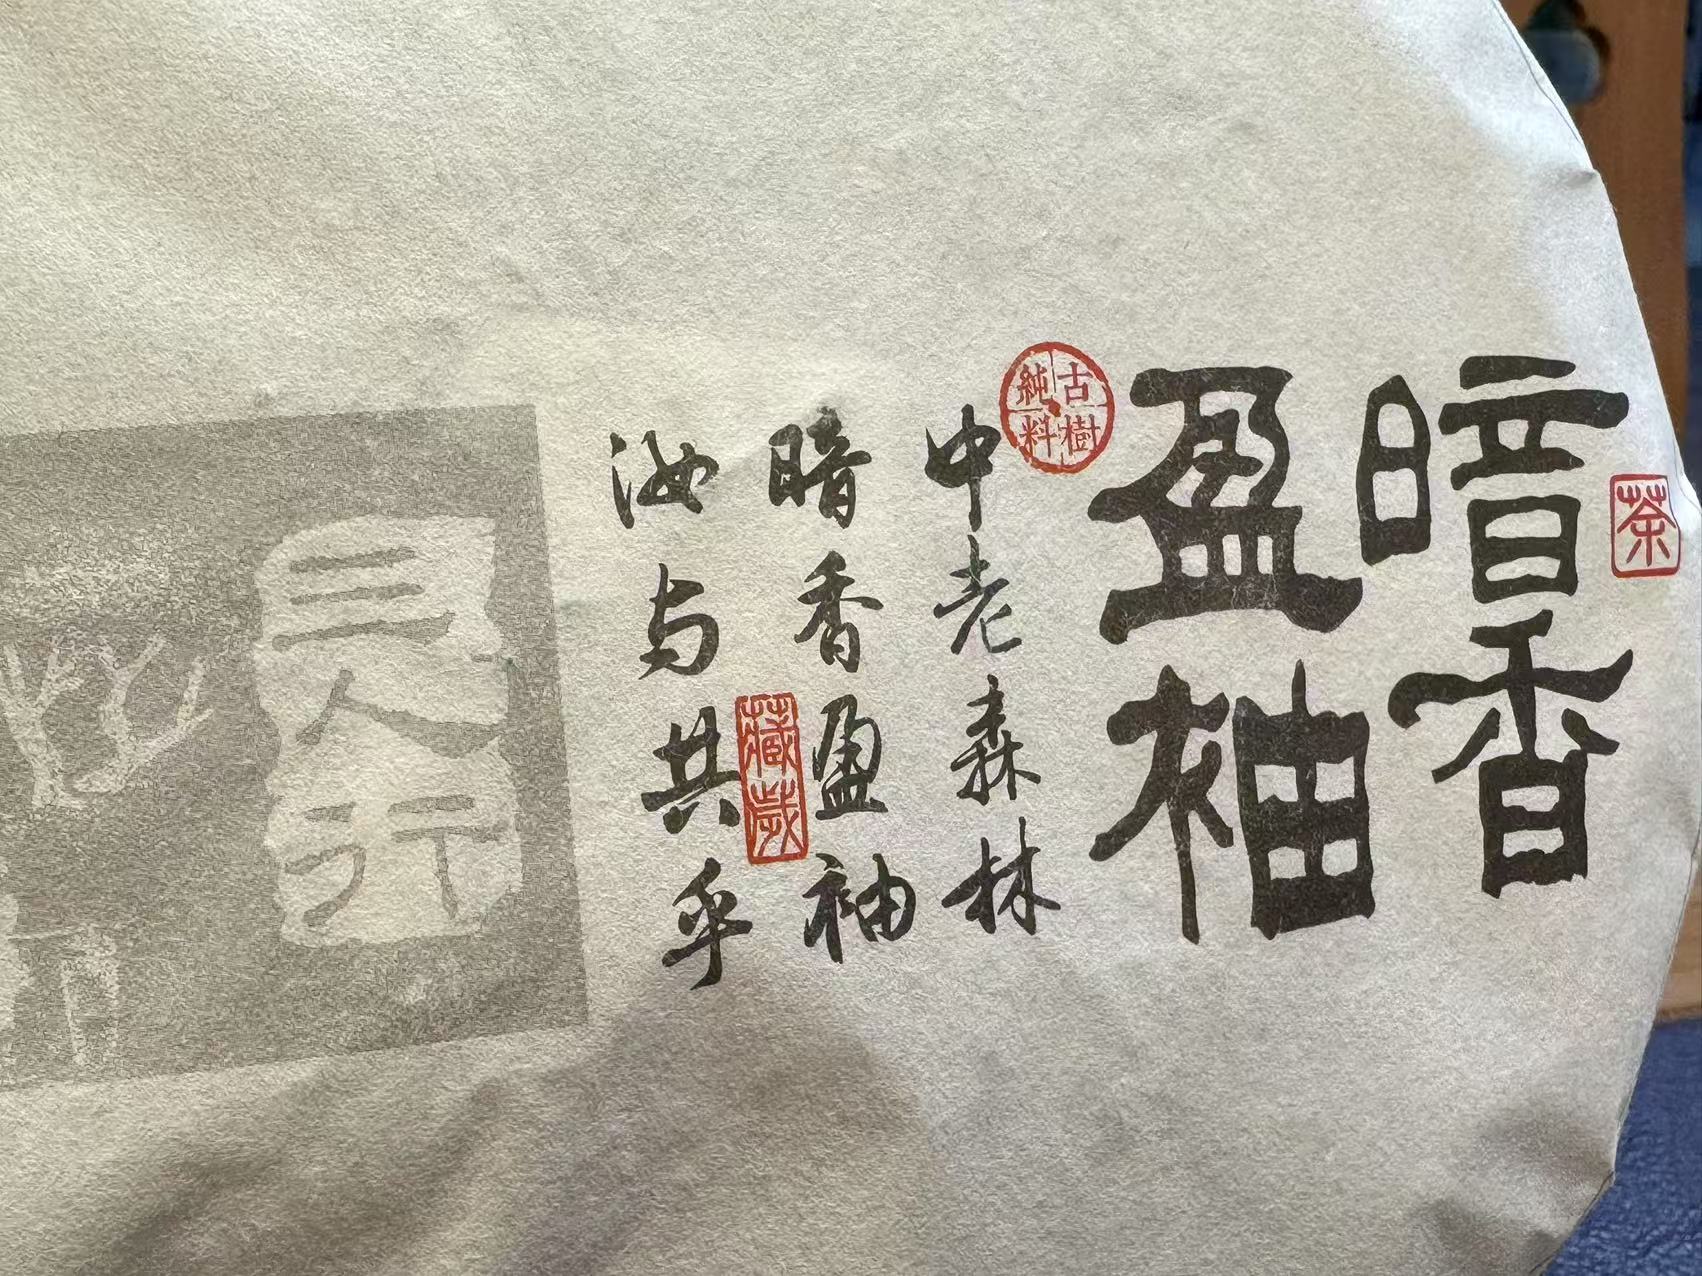 茶
暗香
盈袖
古樹
純料
中老森林
暗香盈袖
汝与共乎
藏歲
三人行